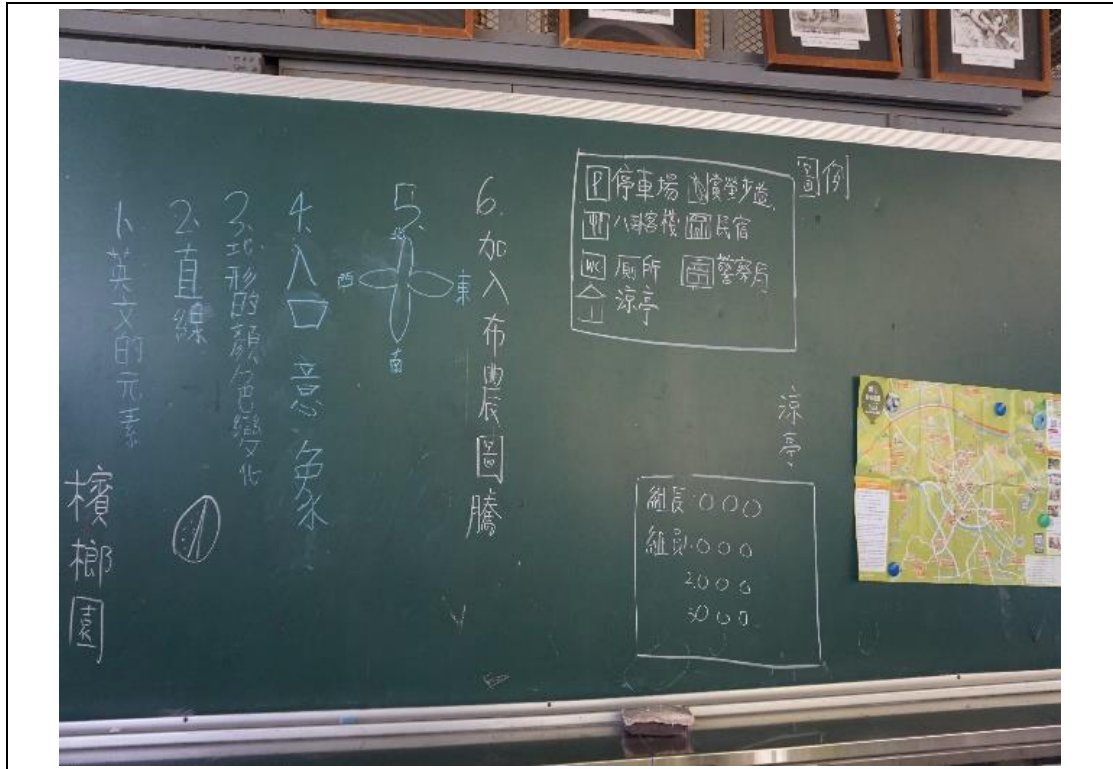 1. 英文的元素
2. 直線
3. 地形的顏色變化
4. 入口意象
5.
北
西
東
南
6. 加入布農圖騰
檳榔園
圖例
P 停車場 賞螢步道
八哥客棧 民宿
WC 廁所 警察局
涼亭
涼亭
組長:○○○
組員:○○○
2.○○○
3○○○